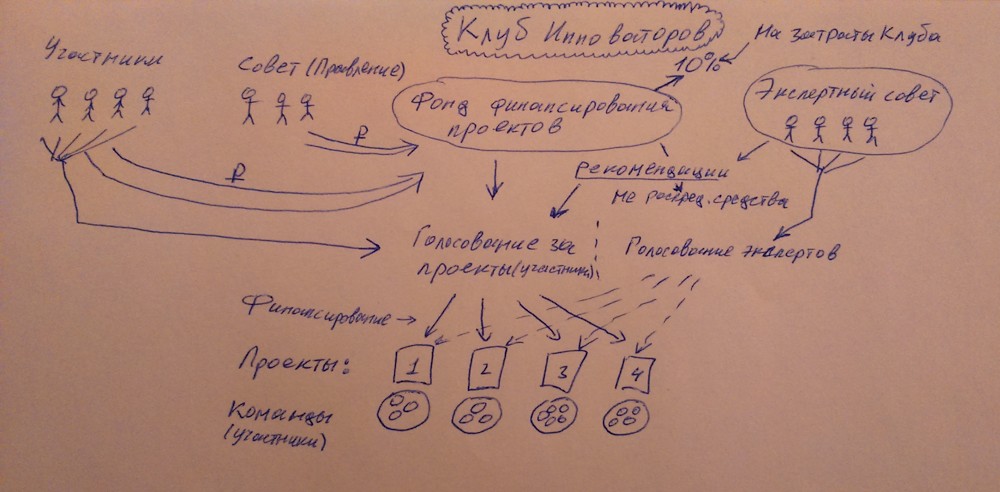 Клуб Инноваторов
На затраты Клуба
10%
Участники
Совет (Правление)
Фонд финансирования
проектов
Экспертный совет
₽
₽
рекомендации
не распред. средства
Голосование за
проекты (участники)
Голосование экспертов
Финансирование →
Проекты:
1
2
3
4
Команды
(участники)